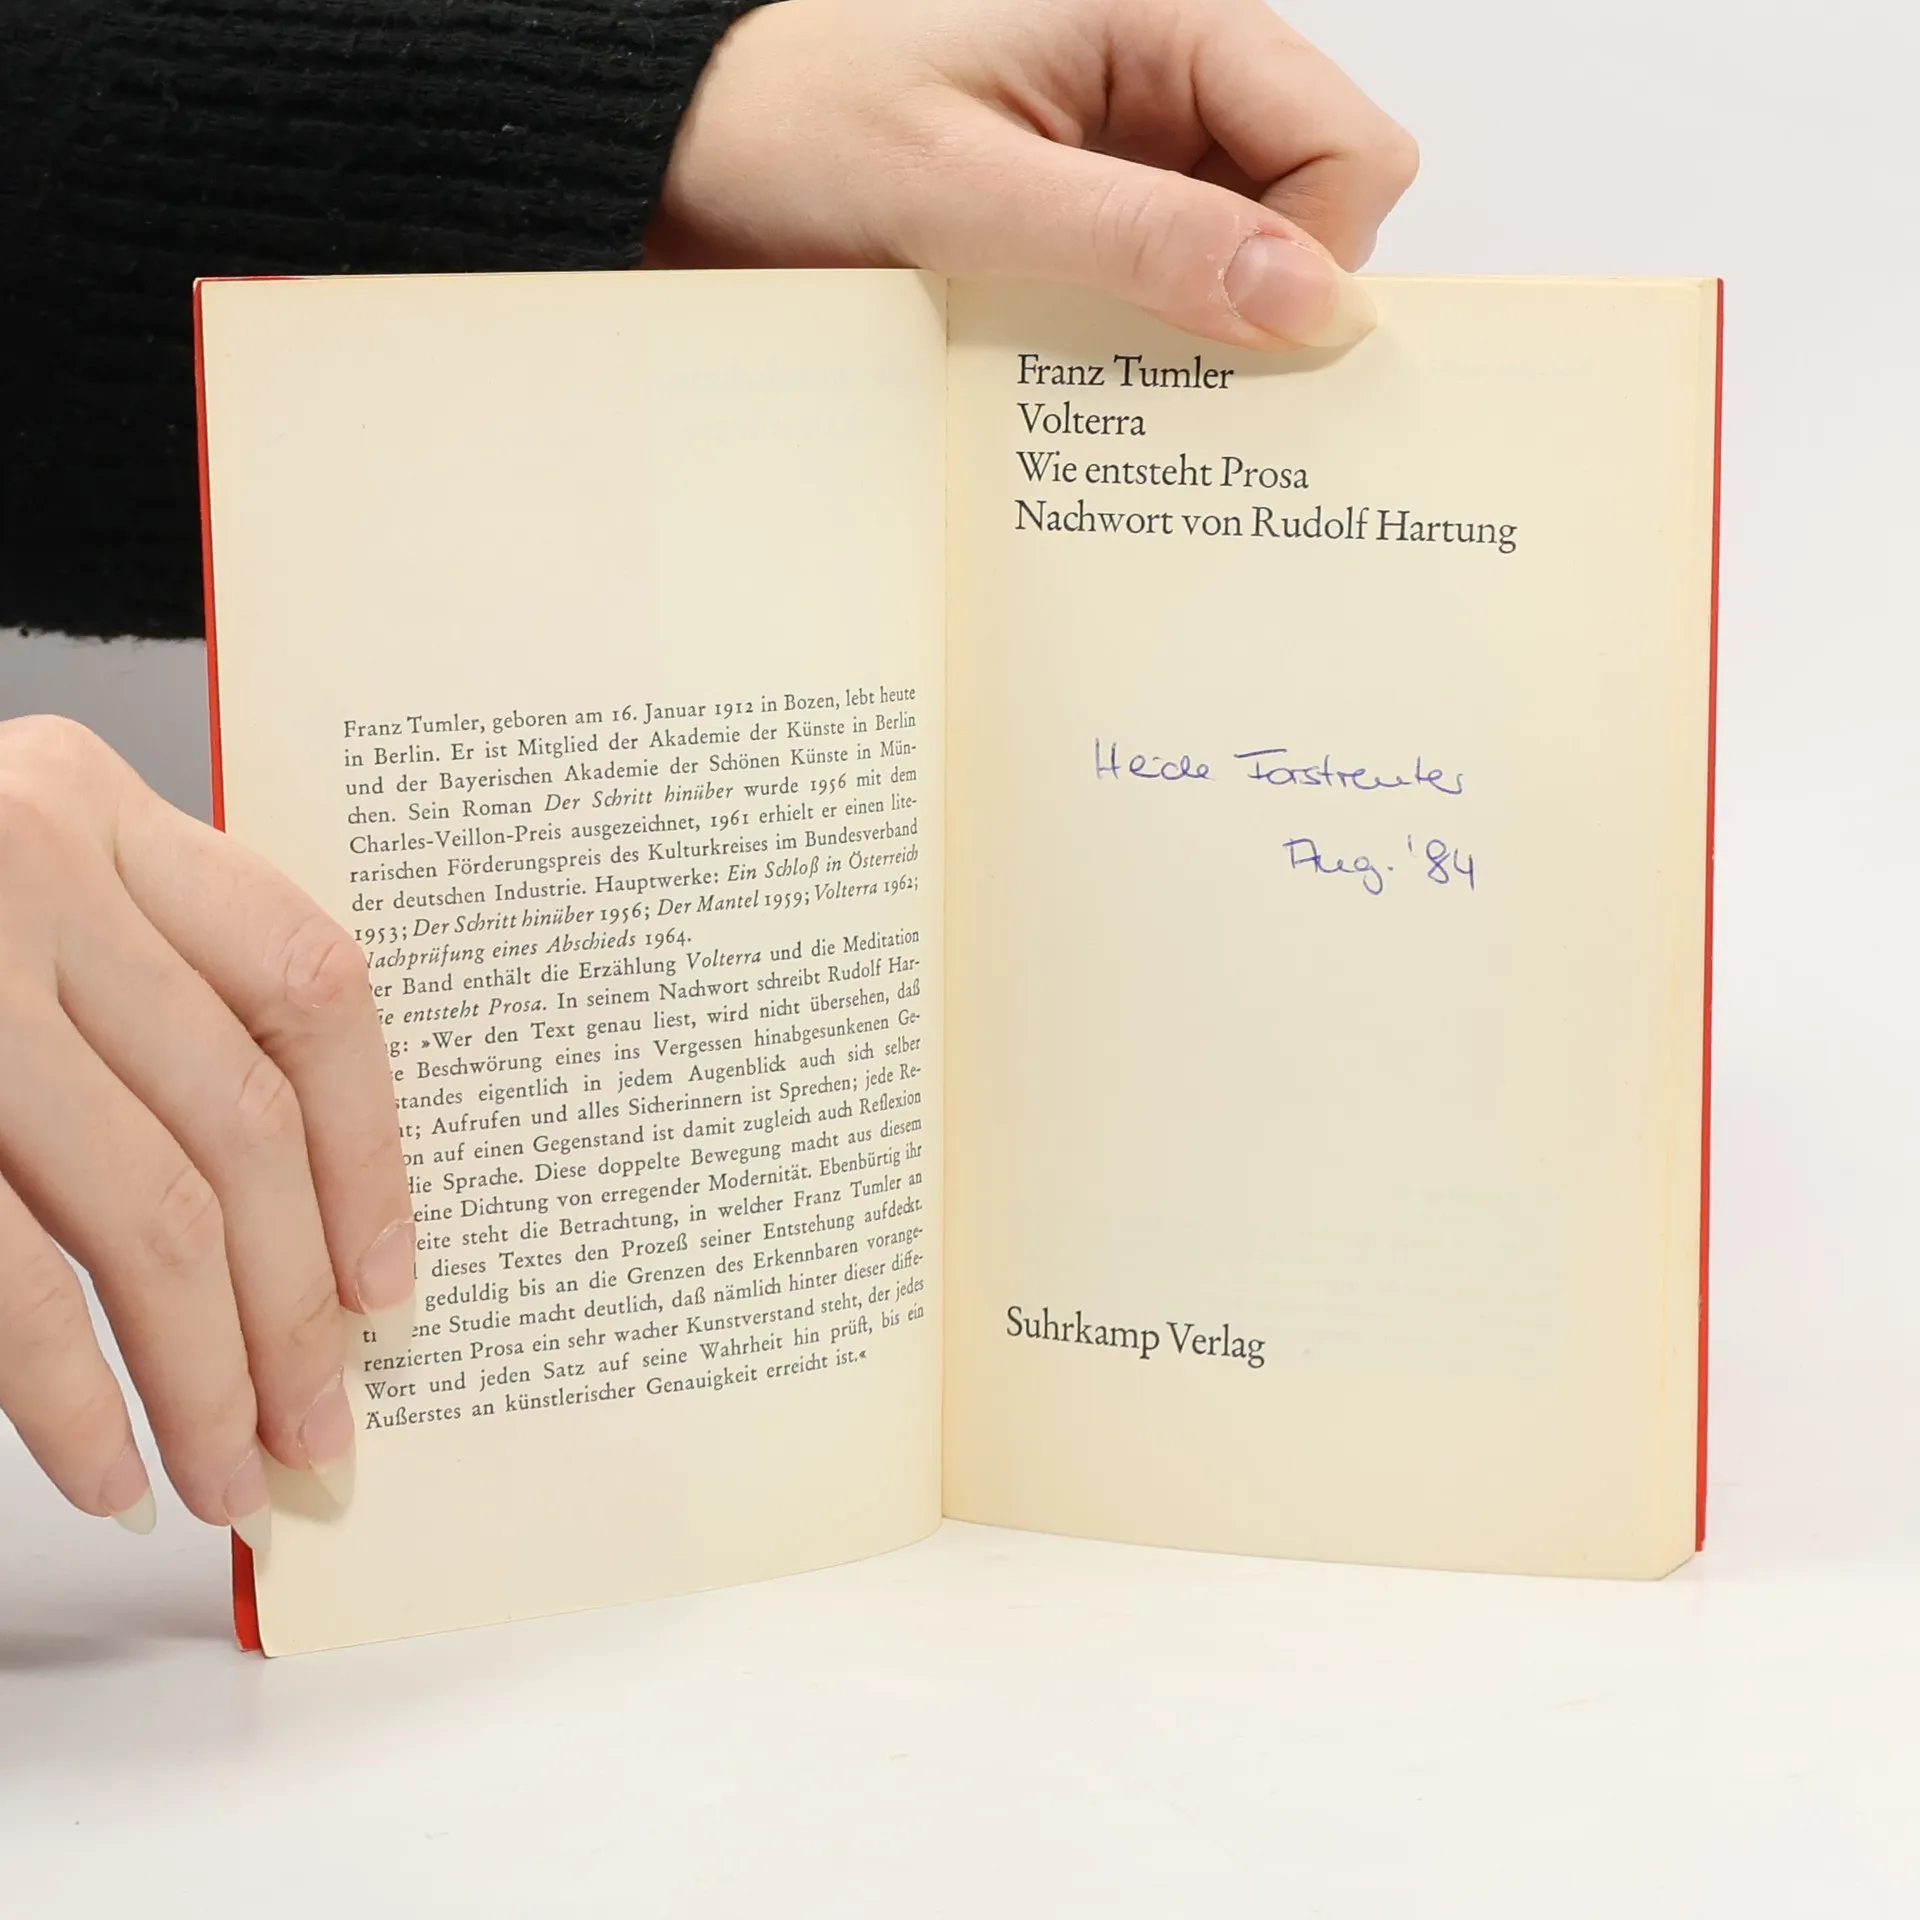 Franz Tumler, geboren am 16. Januar 1912 in Bozen, lebt heute
in Berlin. Er ist Mitglied der Akademie der Künste in Berlin
und der Bayerischen Akademie der Schönen Künste in Mün-
chen. Sein Roman Der Schritt hinüber wurde 1956 mit dem
Charles-Veillon-Preis ausgezeichnet, 1961 erhielt er einen lite-
rarischen Förderungspreis des Kulturkreises im Bundesverband
der deutschen Industrie. Hauptwerke: Ein Schloß in Österreich
1953; Der Schritt hinüber 1956; Der Mantel 1959; Volterra 1962;
Nachprüfung eines Abschieds 1964.
er Band enthält die Erzählung Volterra und die Meditation
ie entsteht Prosa. In seinem Nachwort schreibt Rudolf Har-
g: »Wer den Text genau liest, wird nicht übersehen, daß
e Beschwörung eines ins Vergessen hinabgesunkenen Ge-
standes eigentlich in jedem Augenblick auch sich selber
t; Aufrufen und alles Sicherinnern ist Sprechen; jede Re-
on auf einen Gegenstand ist damit zugleich auch Reflexion
die Sprache. Diese doppelte Bewegung macht aus diesem
eine Dichtung von erregender Modernität. Ebenbürtig ihr
eite steht die Betrachtung, in welcher Franz Tumler an
dieses Textes den Prozeß seiner Entstehung aufdeckt.
geduldig bis an die Grenzen des Erkennbaren vorange-
ene Studie macht deutlich, daß nämlich hinter dieser diffe-
renzierten Prosa ein sehr wacher Kunstverstand steht, der jedes
Wort und jeden Satz auf seine Wahrheit hin prüft, bis ein
Äußerstes an künstlerischer Genauigkeit erreicht ist.«
Franz Tumler
Volterra
Wie entsteht Prosa
Nachwort von Rudolf Hartung
Heide Forstreuter
Aug. '84
Suhrkamp Verlag